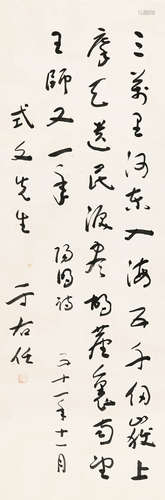 三萬里河東入海五千仞嶽上
摩天遺民淚盡胡塵裏南望
王師又一年 詩 三十一年十一月
式文先生
于右任